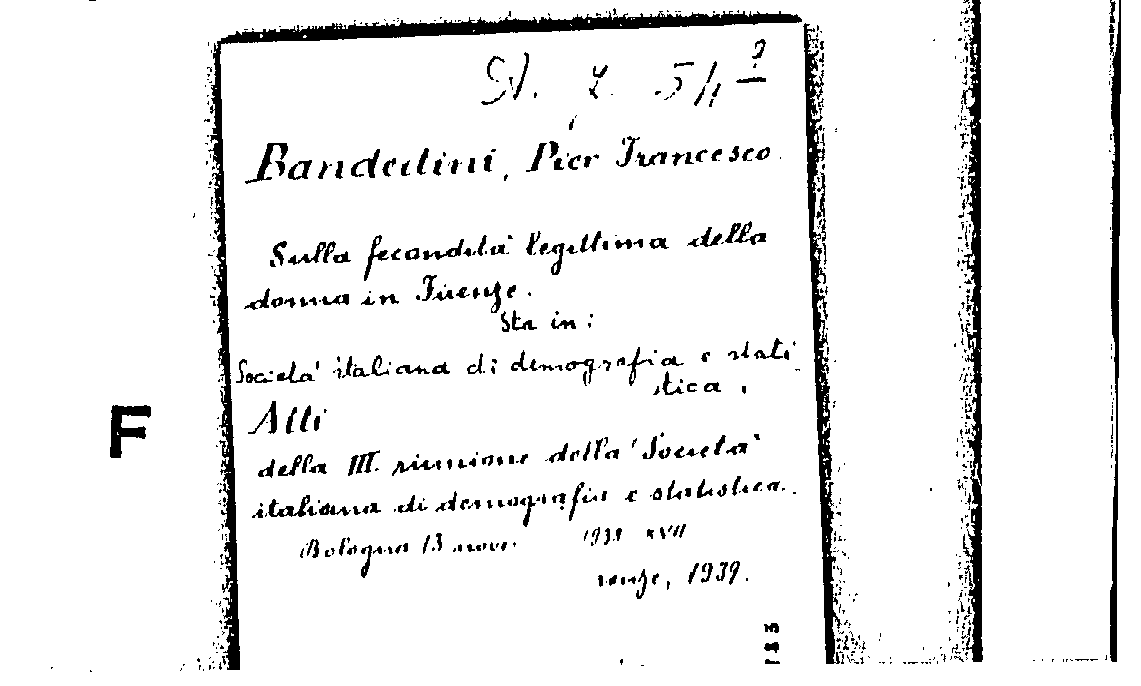 St. 2. 5/1 2
Bandettini, Pier Francesco.
Sulla fecondità legittima della
donna in Firenze.
Sta in:
Società italiana di demografia e stati
stica.
Atti
della III. riunione della Società
italiana di demografia e statistica.
Bologna 13 nove. 1938 XVII
renze, 1939.
F